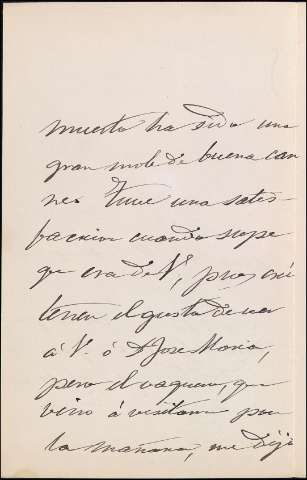 muerto ha sido una
gran mole de buena car
nes. Tuve una satis-
faccion cuando supe
que era de V, pues así
tener el gusto de ver
á V. ó Dn Jose Maria,
pero el vaquero, que
vino á visitarme por
la mañana, me dijo